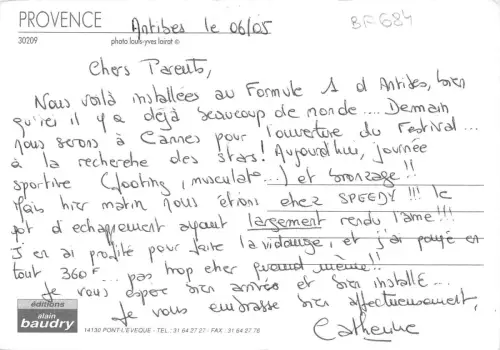 PROVENCE
Antibes le 06/05
BF684
30209
photo louis-yves loirat ©
Chers Parents,
Nous voilà installées au Formule 1 d'Antibes, bien
qu'ici il y a déjà beaucoup de monde.... Demain
nous serons à Cannes pour l'ouverture du Festival...
à la recherche des stars! Aujourd'hui, journée
sportive (footing, musculat...) et bronzage!!
Mais hier matin nous étions chez SPEEDY!!! le
pot d'echappement ayant largement rendu l'âme!!!
J'en ai profité pour faire la vidange, et j'ai payé en
tout 360F... pas trop cher quand même!!
Je vous espère bien arrivés et bien installé...
Je vous embrasse bien affectueusement,
Catherine
éditions
alain
baudry
14130 PONT-L'EVEQUE - TEL.: 31 64 27 27 - FAX: 31 64 27 76